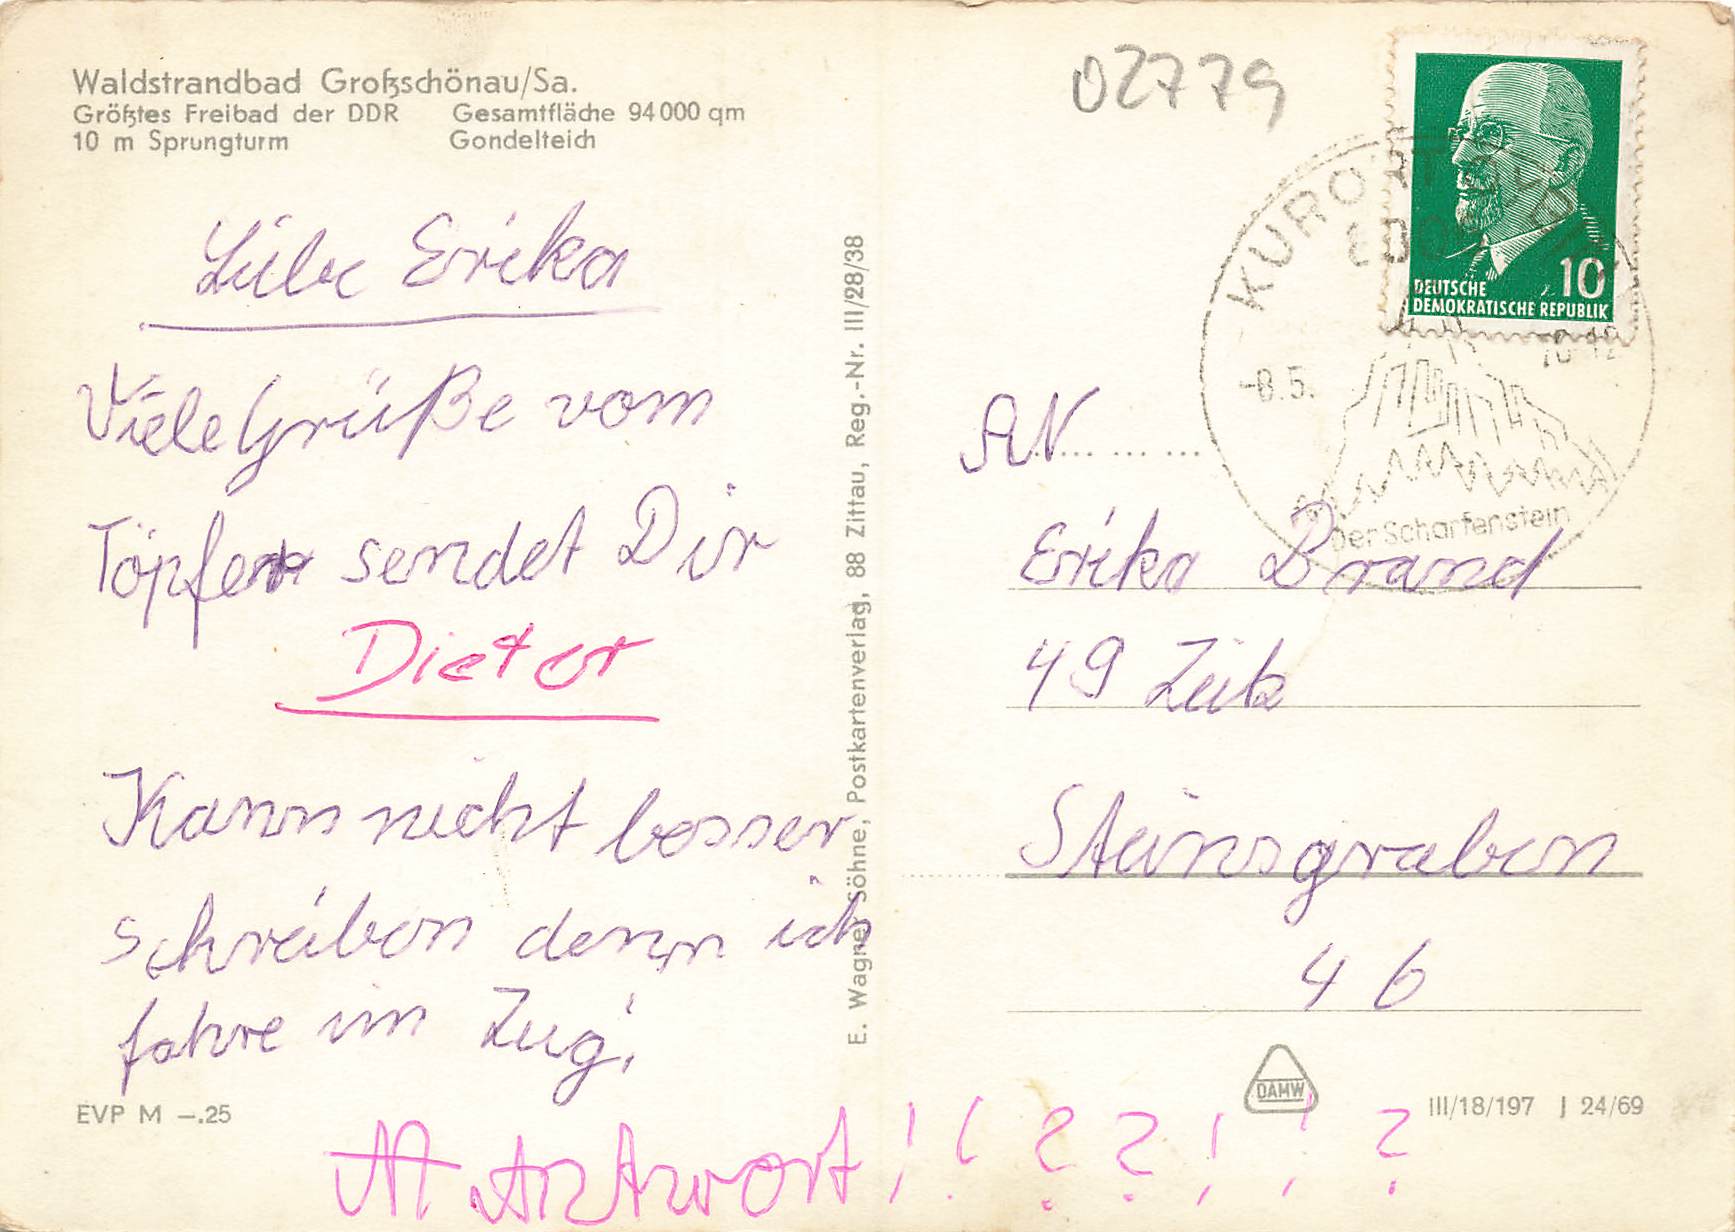 Waldstrandbad Großschönau/Sa.
Größtes Freibad der DDR Gesamtfläche 94000 qm
10 m Sprungturm Gondelteich
02779
DEUTSCHE
DEMOKRATISCHE REPUBLIK
10
KURORT
-8.5.
Der Scharfenstein
Liebe Erika
Viele Grüße vom
Töpfer sendet Dir
Dieter
Kann nicht besser
schreiben denn ich
fahre im Zug!
E. Wagner Söhne, Postkartenverlag, 88 Zittau, Reg.-Nr. III/28/38
AN
Erika Brand
49 Zeitz
Steinsgraben
46
DAMW
EVP M —.25
III/18/197 J 24/69
Antwort !!??!!?